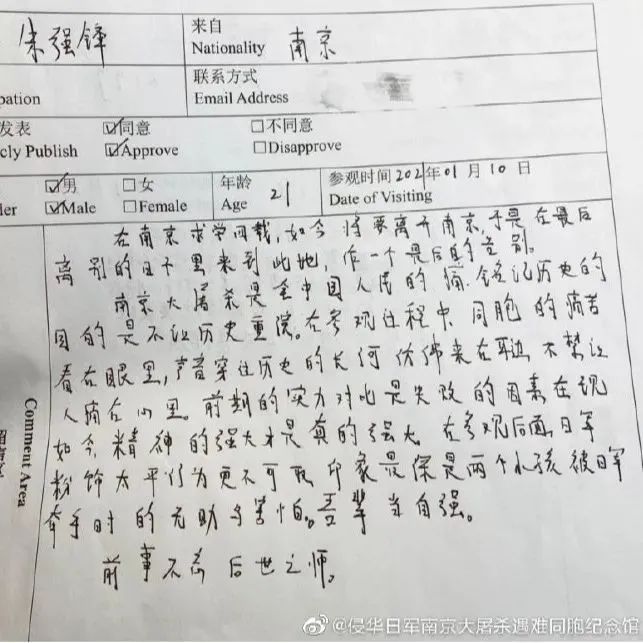 朱强锋
来自
Nationality 南京
联系方式
Email Address
pation
发表 ☑同意 □不同意
cly Publish ☑Approve □Disapprove
☑男 □女 年龄 21 参观时间 2021年01月10日
der ☑Male □Female Age Date of Visiting
Comment Area
在南京求学四载,如今将要离开南京,于是在最后
离别的日子里来到此地,作一个最后的告别。
南京大屠杀是全中国人民的痛,铭记历史的
目的是不让历史重院。在参观过程中,同胞的痛苦
看在眼里,声音穿过历史的长河仿佛来在耳边,不禁让
人痛在心里。前期的实力对比是失败的因素在现
如今,精神的强大才是真的强大。在参观后面,日军
粉饰太平行为更不可取,印象最深是两个小孩被日军
牵手时的无助与害怕。吾辈当自强。
前事不忘 后世之师。
@侵华日军南京大屠杀遇难同胞纪念馆